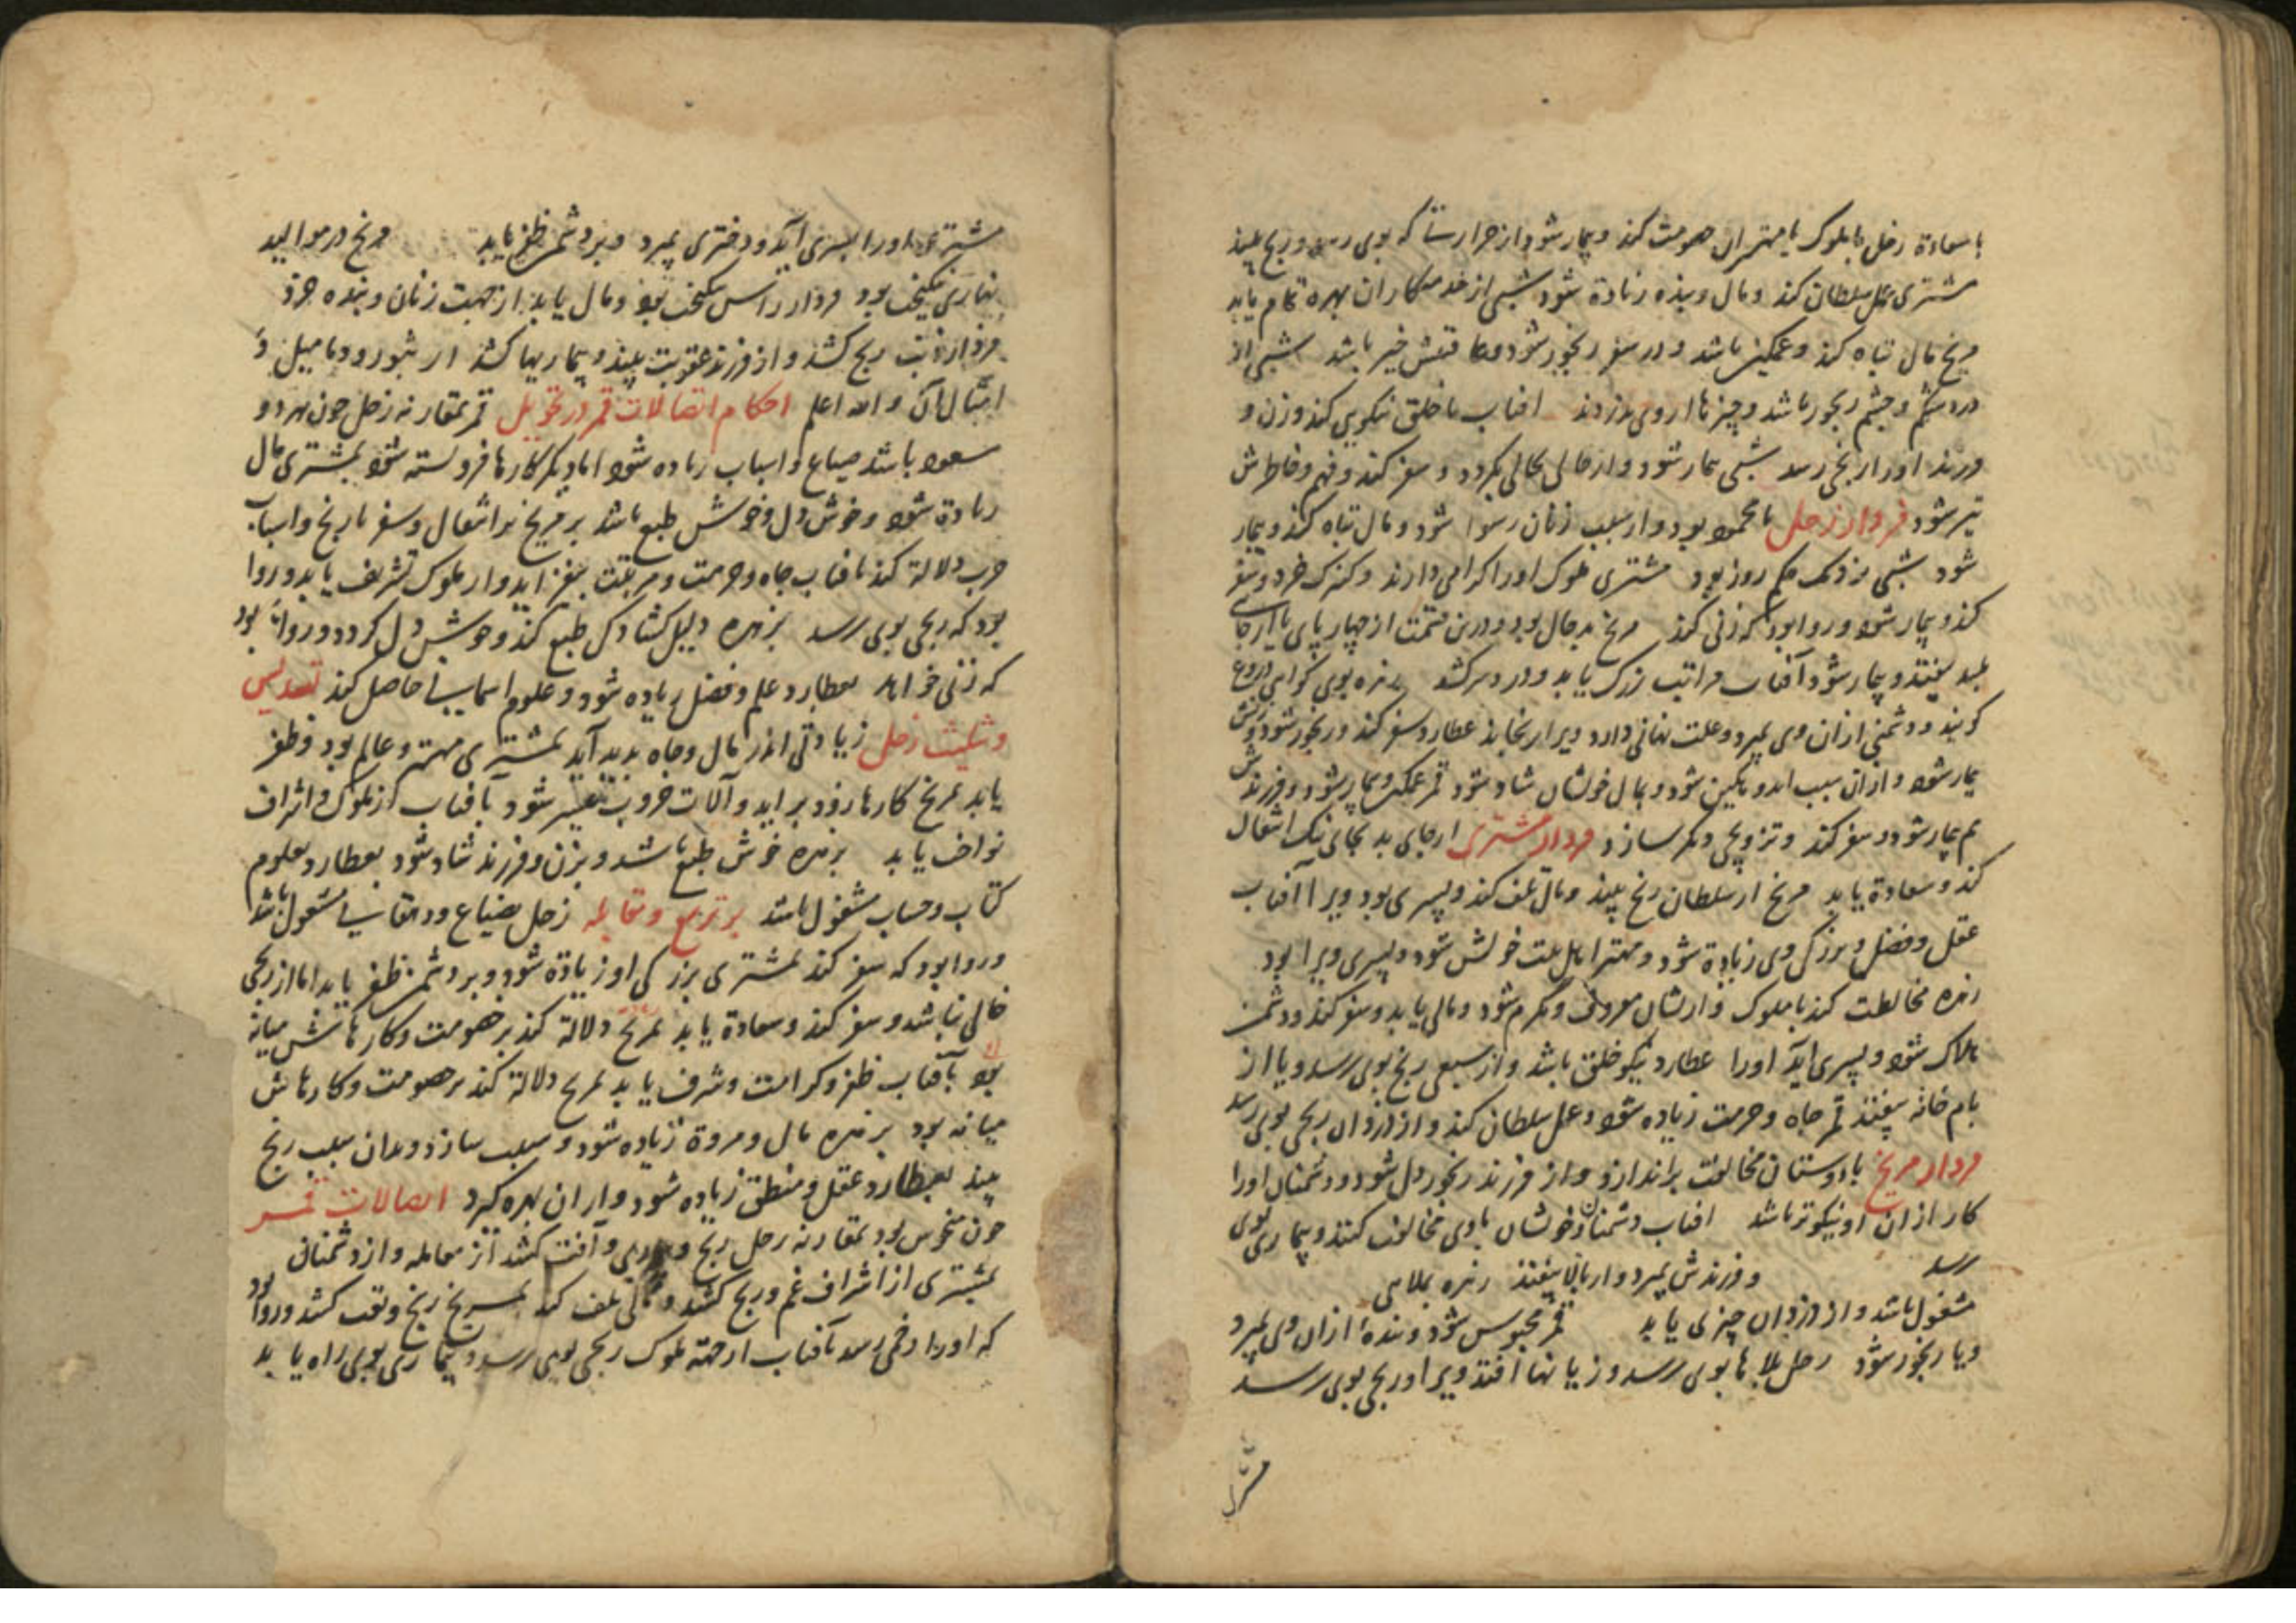 با سعادة زحل با ملوک یا مهتران خصومت کند و بیمار شود از حرارت که بوی رسد و رنج بیند
مشتری عمل سلطان کند و مال و بنده زیادة شود شبی از خدمتکاران بهره تمام یابد
مریخ مال تباه کند و غمگین باشد و در سفر رنجور شود و عاقبتش خیر باشد شبی از
درد شکم و چشم رنجور باشد و چیزها از وی بدزدند افتاب با خلق نیکویی کند و زن و
فرزند او را رنجی رسد شبی بیمار شود و از حالی بحالی بگردد و سفر کند و فهم و خاطرش
تیز شود فردار زحل نامحمود بود و از سبب زنان رسوا شود و مال تباه کند و بیمار
شود شبی نزدیک حکم روز بود مشتری ملوک او را کرامی دارند و کنیزک خرد و سفر
کند و بیمار شود و روا بود که زنی کند مریخ بد حال بود و درین قسمت از چهار پای یا از جای
بلند بیفتد و بیمار شود آفتاب مراتب بزرک یابد و درد سر کشد زهره بوی کواهی دروغ
کویند و دشمنی ازان وی بمیرد و علت نهانی دارد ویرا برنجاند عطارد سفر کند و رنجور شود و زنش
بیمار شود و ازان سبب اندوهکین شود و بمال خویشان شاد شود قمر غمکین و بیمار شود و فرزندش
هم بیمار شود و سفر کند و تزویجی دیگر سازد فردار مشتری از جای بد بجای نیک انتقال
کند و سعادة یابد مریخ از سلطان رنج بیند و مال تلف کند و پسری بود ویرا آفتاب
عقل و فضل و بزرکی وی زیادة شود و مهتر اهل بیت خویش شود و پسری ویرا بود
زهره مخالطت کند با ملوک و ازیشان معروف و مکرم شود و مالی یابد و سفر کند و دشمنش
هلاک شود و پسری آید او را عطارد نیکو خلق باشد و از سبعی رنج بوی رسد و یا از
بام خانه بیفتد قمر جاه و حرمت زیاده شود و عمل سلطان کند و از دزدان رنجی بوی رسد
فردار مریخ با دوستان مخالفت براندازد و از فرزند رنجور دل شود و دشمنان او را
کار ازان او نیکوتر باشد افتاب دشمنان و خویشان با وی مخالفت کنند و بیماری بوی
رسد و فرزندش بمیرد و از بالا بیفتد زهره بملاهی
مشغول باشد و از دزدان چیزی یابد قمر محبوس شود و بندهٔ ازان وی بمیرد
و یا رنجور شود زحل بلاها بوی رسد و زیانها افتد ویرا و رنجی بوی رسد
مشتری
مشتری او را پسری آید و دختری بمیرد و بر دشمن ظفر یابد مریخ در موالید
نهاری نیکبخت بود فردار راس نیکبخت بود و مال یابد از جهت زنان و بنده خرد
فردار ذنب رنج کشد و از فرزند عقوبت بیند و بیماریها کشد از بثور و دمامیل و
امثال آن والله اعلم احکام اتصالات قمر در تحویل قمر بمقارنه زحل چون هر دو
مسعود باشند ضیاع و اسباب زیاده شود اما دیگر کارها فروبسته شود بمشتری مال
زیادة شود و خوش دل و خوش طبع باشد بر مریخ بر اشغال و سفر با رنج و اسباب
حرب دلالة کند بافتاب جاه و حرمت و مرتبت بیفزاید و از ملوک تشریف یابد و روا
بود که رنجی بوی رسد بزهره دلیل کشادکی طبع کند و خوش دل کردد و روا بود
که زنی خواهد بعطارد علم و فضل زیاده شود و علوم حسابی حاصل کند تسدیس
و تثلیث زحل زیادتی اندر مال و جاه پدید آید بمشتری مهتر و عالم بود و ظفر
یابد بمریخ کارها زود براید و آلات حروب میسر شود بآفتاب از ملوک و اشراف
نواخت یابد بزهره خوش طبع باشد و بزن و فرزند شاد شود بعطارد بعلوم
کتاب و حساب مشغول باشد بر تربیع و مقابله زحل بضیاع و دهقانی مشغول باشد
و روا بود که سفر کند بمشتری بزرکی او زیادة شود و بر دشمن ظفر یابد اما از رنجی
خالی نباشد و سفر کند و سعادة یابد بمریخ دلالة کند بر خصومت و کارهاش میانه
بود بآفتاب ظفر و کرامت و شرف یابد بمریخ دلالة کند بر خصومت و کارهاش
میانه بود بزهره مال و مروة زیاده شود و سازد و بدان سبب رنج
بیند بعطارد عقل و منطق زیاده شود و ازان بهره کیرد اتصالات قمر
چون منحوس بود بمقارنه زحل رنج و و آفت کشد از معامله و از دشمنان
بمشتری از اشراف غم و رنج کشد و مالی تلف کند بمریخ رنج و تعب کشد و روا بود
که او را زخمی رسد بآفتاب از جهة ملوک رنجی بوی رسد و بیماری بوی راه یابد